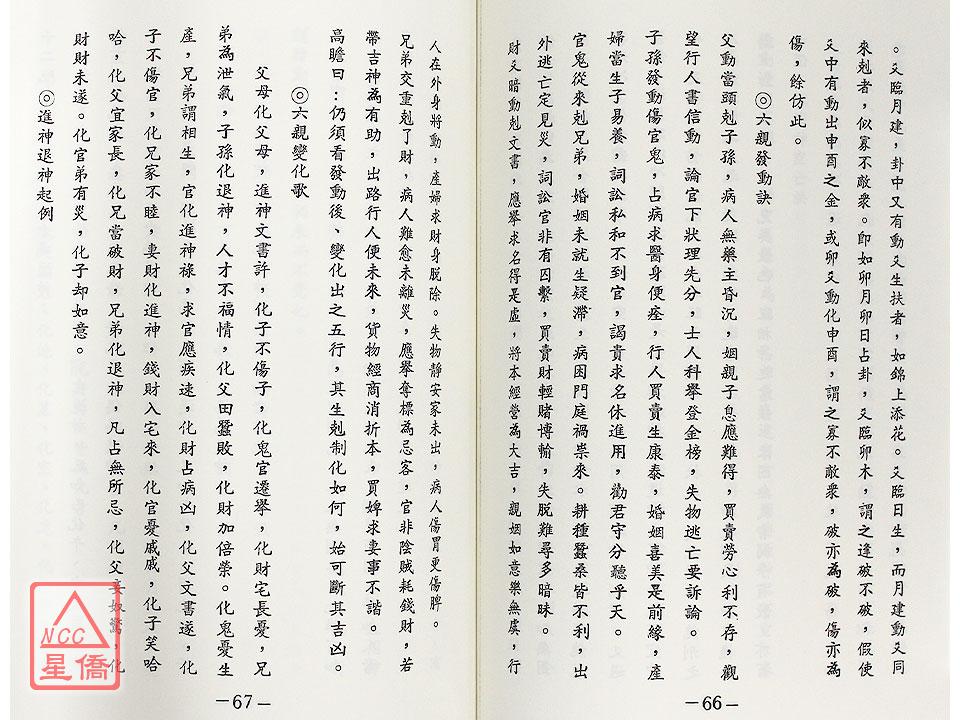 。爻臨月建，卦中又有動爻生扶者，如錦上添花。爻臨日生，而月建動爻同
來剋者，似寡不敵衆。即如卯月卯日占卦，爻臨卯木，謂之逢破不破，假使
爻中有動出申酉之金，或卯爻動化申酉，謂之寡不敵衆，破亦為破，傷亦為
傷，餘仿此。
◎六親發動訣
父動當頭剋子孫，病人無藥主昏沉，姻親子息應難得，買賣勞心利不存，觀
望行人書信動，論官下狀理先分，士人科舉登金榜，失物逃亡要訴論。
子孫發動傷官鬼，占病求醫身便痊，行人買賣生康泰，婚姻喜美是前緣，產
婦當生子易養，詞訟私和不到官，謁貴求名休進用，勸君守分聽乎天。
官鬼從來剋兄弟，婚姻未就生疑滯，病困門庭禍祟來。耕種蠶桑皆不利，出
外逃亡定見災，詞訟官非有囚繫，買賣財輕賭博輸，失脱難尋多暗昧。
財爻暗動剋文書，應舉求名得是虛，將本經營為大吉，親姻如意樂無虞，行
－66－
人在外身將動，產婦求財身脱除。失物靜安家未出，病人傷胃更傷脾。
兄弟交重剋了財，病人難愈未離災，應舉奪標為忌客，官非陰賊耗錢財，若
帶吉神為有助，出路行人便未來，貨物經商消折本，買婢求妻事不諧。
高瞻曰：仍須看發動後、變化出之五行，其生剋制化如何，始可斷其吉凶。
◎六親變化歌
父母化父母，進神文書許，化子不傷子，化鬼官遷舉，化財宅長憂，兄
弟為泄氣，子孫化退神，人才不福情，化父田蠶敗，化財加倍榮。化鬼憂生
產，兄弟謂相生，官化進神祿，求官應疾速，化財占病凶，化父文書遂，化
子不傷官，化兄家不睦，妻財化進神，錢財入宅來，化官憂戚戚，化子笑哈
哈，化父宜家長，化兄當破財，兄弟化退神，凡占無所忌，化父妾奴驚，化
財財未遂。化官弟有災，化子却如意。
◎進神退神起例
－67－
NCC
星僑